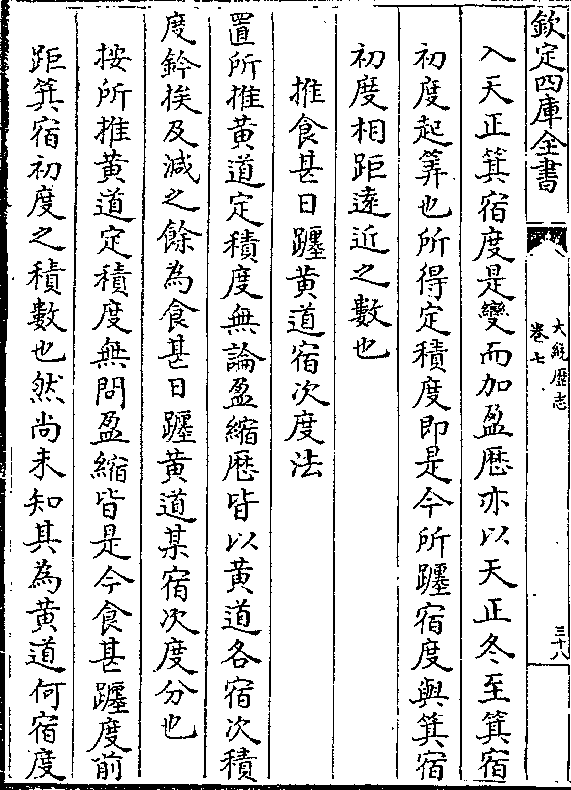 欽定四庫全書
大統歷志
卷七
三十八
入天正箕宿度是變而加盈厯亦以天正冬至箕宿
初度起筭也所得定積度即是今所躔宿度與箕宿
初度相距遠近之數也
推食甚日躔黄道宿次度法
置所推黄道定積度無論盈縮厯皆以黄道各宿次積
度鈐挨及減之餘為食甚日躔黄道某宿次度分也
按所推黄道定積度無問盈縮皆是今食甚躔度前
距箕宿初度之積數也然尚未知其為黄道何宿度